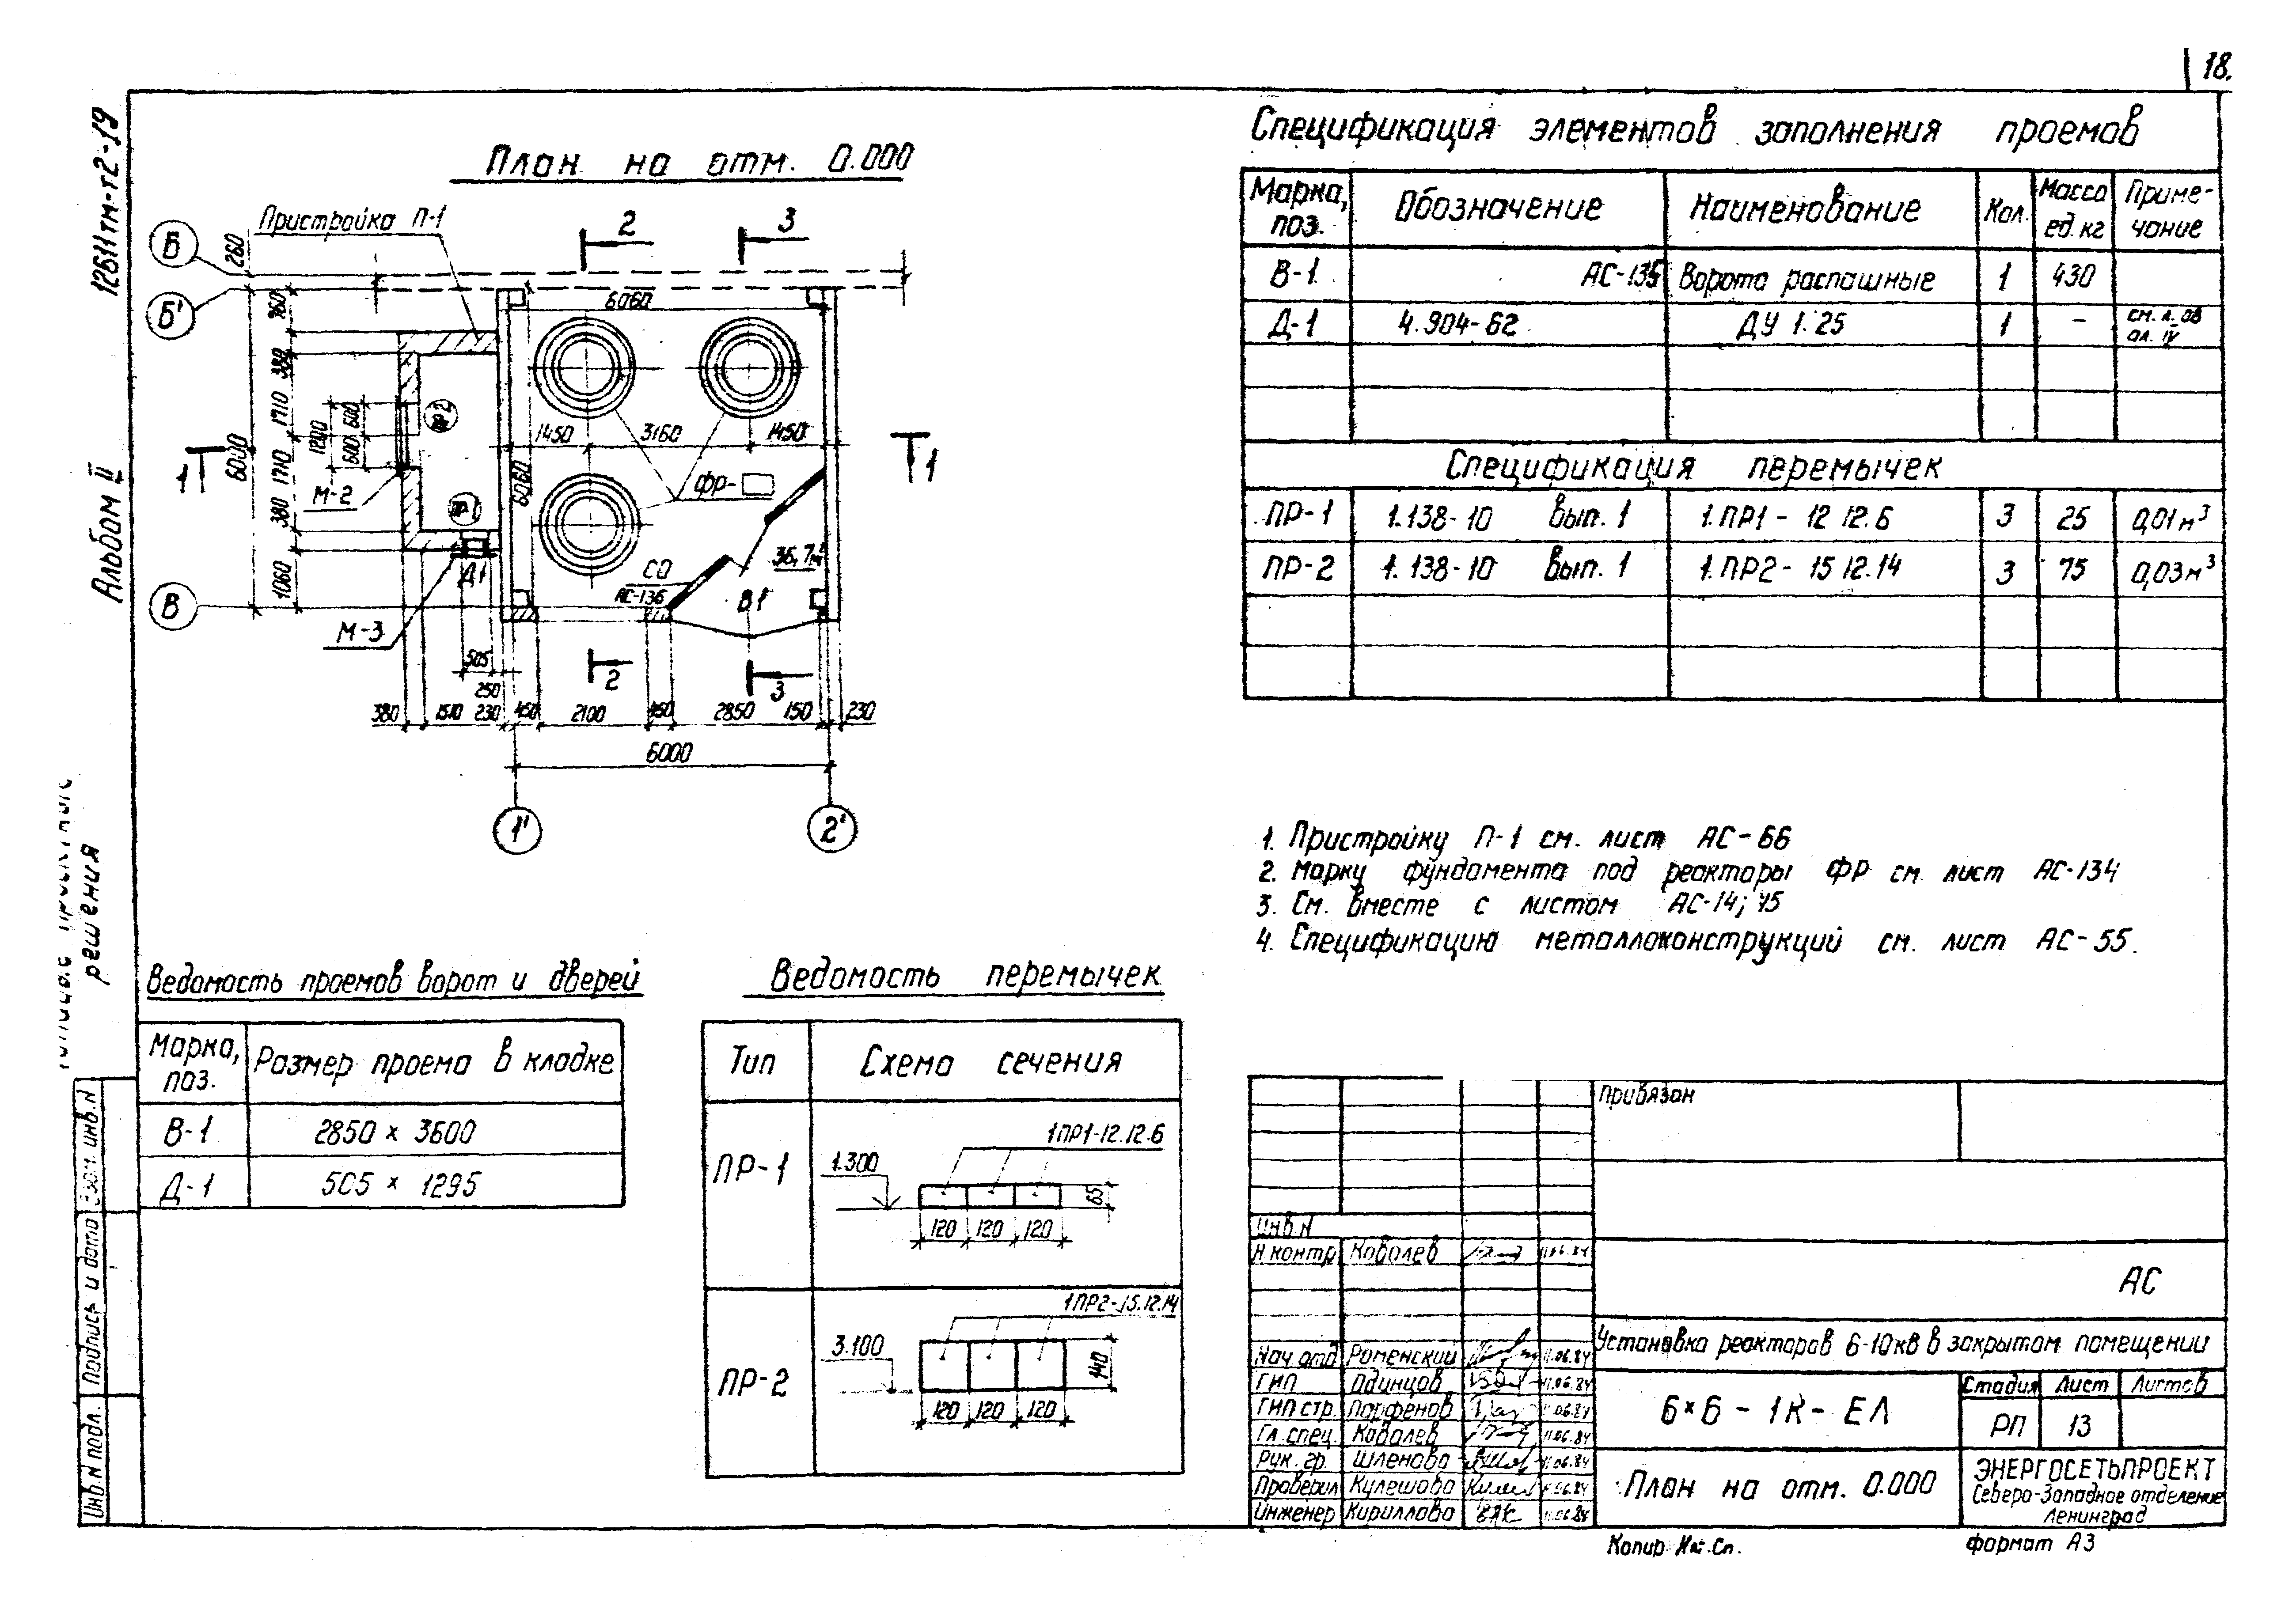 18.
12611тм-т2-19
Альбом II
решения
План на отм. 0.000
Пристройка П-1
2
3
Б
Б'
В
260
960
380
1710
1710
380
1060
6000
1200
600
600
6060
6060
1450
3160
1450
ПР2
ПР1
ФР-
М-2
М-3
Д1
СО
АС-136
В1
36,7м²
1
1
505
250
2
3
380
1510
230
450
2100
450
2850
150
230
6000
1'
2'
Спецификация элементов заполнения проемов
Марка, поз. Обозначение Наименование Кол. Масса ед. кг Примечание
В-1 АС-135 Ворота распашные 1 430
Д-1 4.904-62 ДУ 1.25 1 - см. л. ОВ ал. IV
Спецификация перемычек
ПР-1 1.138-10 вып. 1 1.ПР1-12 12.6 3 25 0,01м³
ПР-2 1.138-10 вып. 1 1.ПР2-15 12.14 3 75 0,03м³
1. Пристройку П-1 см. лист АС-66
2. Марку фундамента под реакторы ФР см. лист АС-134
3. См. вместе с листом АС-14; 15
4. Спецификацию металлоконструкций см. лист АС-55.
Ведомость проемов ворот и дверей
Марка, поз. Размер проема в кладке
В-1 2850 х 3600
Д-1 505 х 1295
Ведомость перемычек
Тип Схема сечения
ПР-1
1ПР1-12.12.6
1.300
65
120 120 120
ПР-2
1ПР2-15.12.14
3.100
140
120 120 120
Взам. инв. N
Подпись и дата
Инв. N подл.
Привязан
Инв. N
Н контр Ковалев 11.06.84
АС
Нач отд Роменский 11.06.84
ГИП Одинцов 11.06.84
ГИП стр. Парфенов 11.06.84
Гл. спец. Ковалев 11.06.84
Рук. гр. Шленова 11.06.84
Проверил Кулешова 11.06.84
Инженер Кириллова 11.06.84
Установка реакторов 6-10кВ в закрытом помещении
6×6 - 1К - ЕЛ
Стадия Лист Листов
РП 13
План на отм. 0.000
ЭНЕРГОСЕТЬПРОЕКТ
Северо-Западное отделение
Ленинград
Копир
формат А3